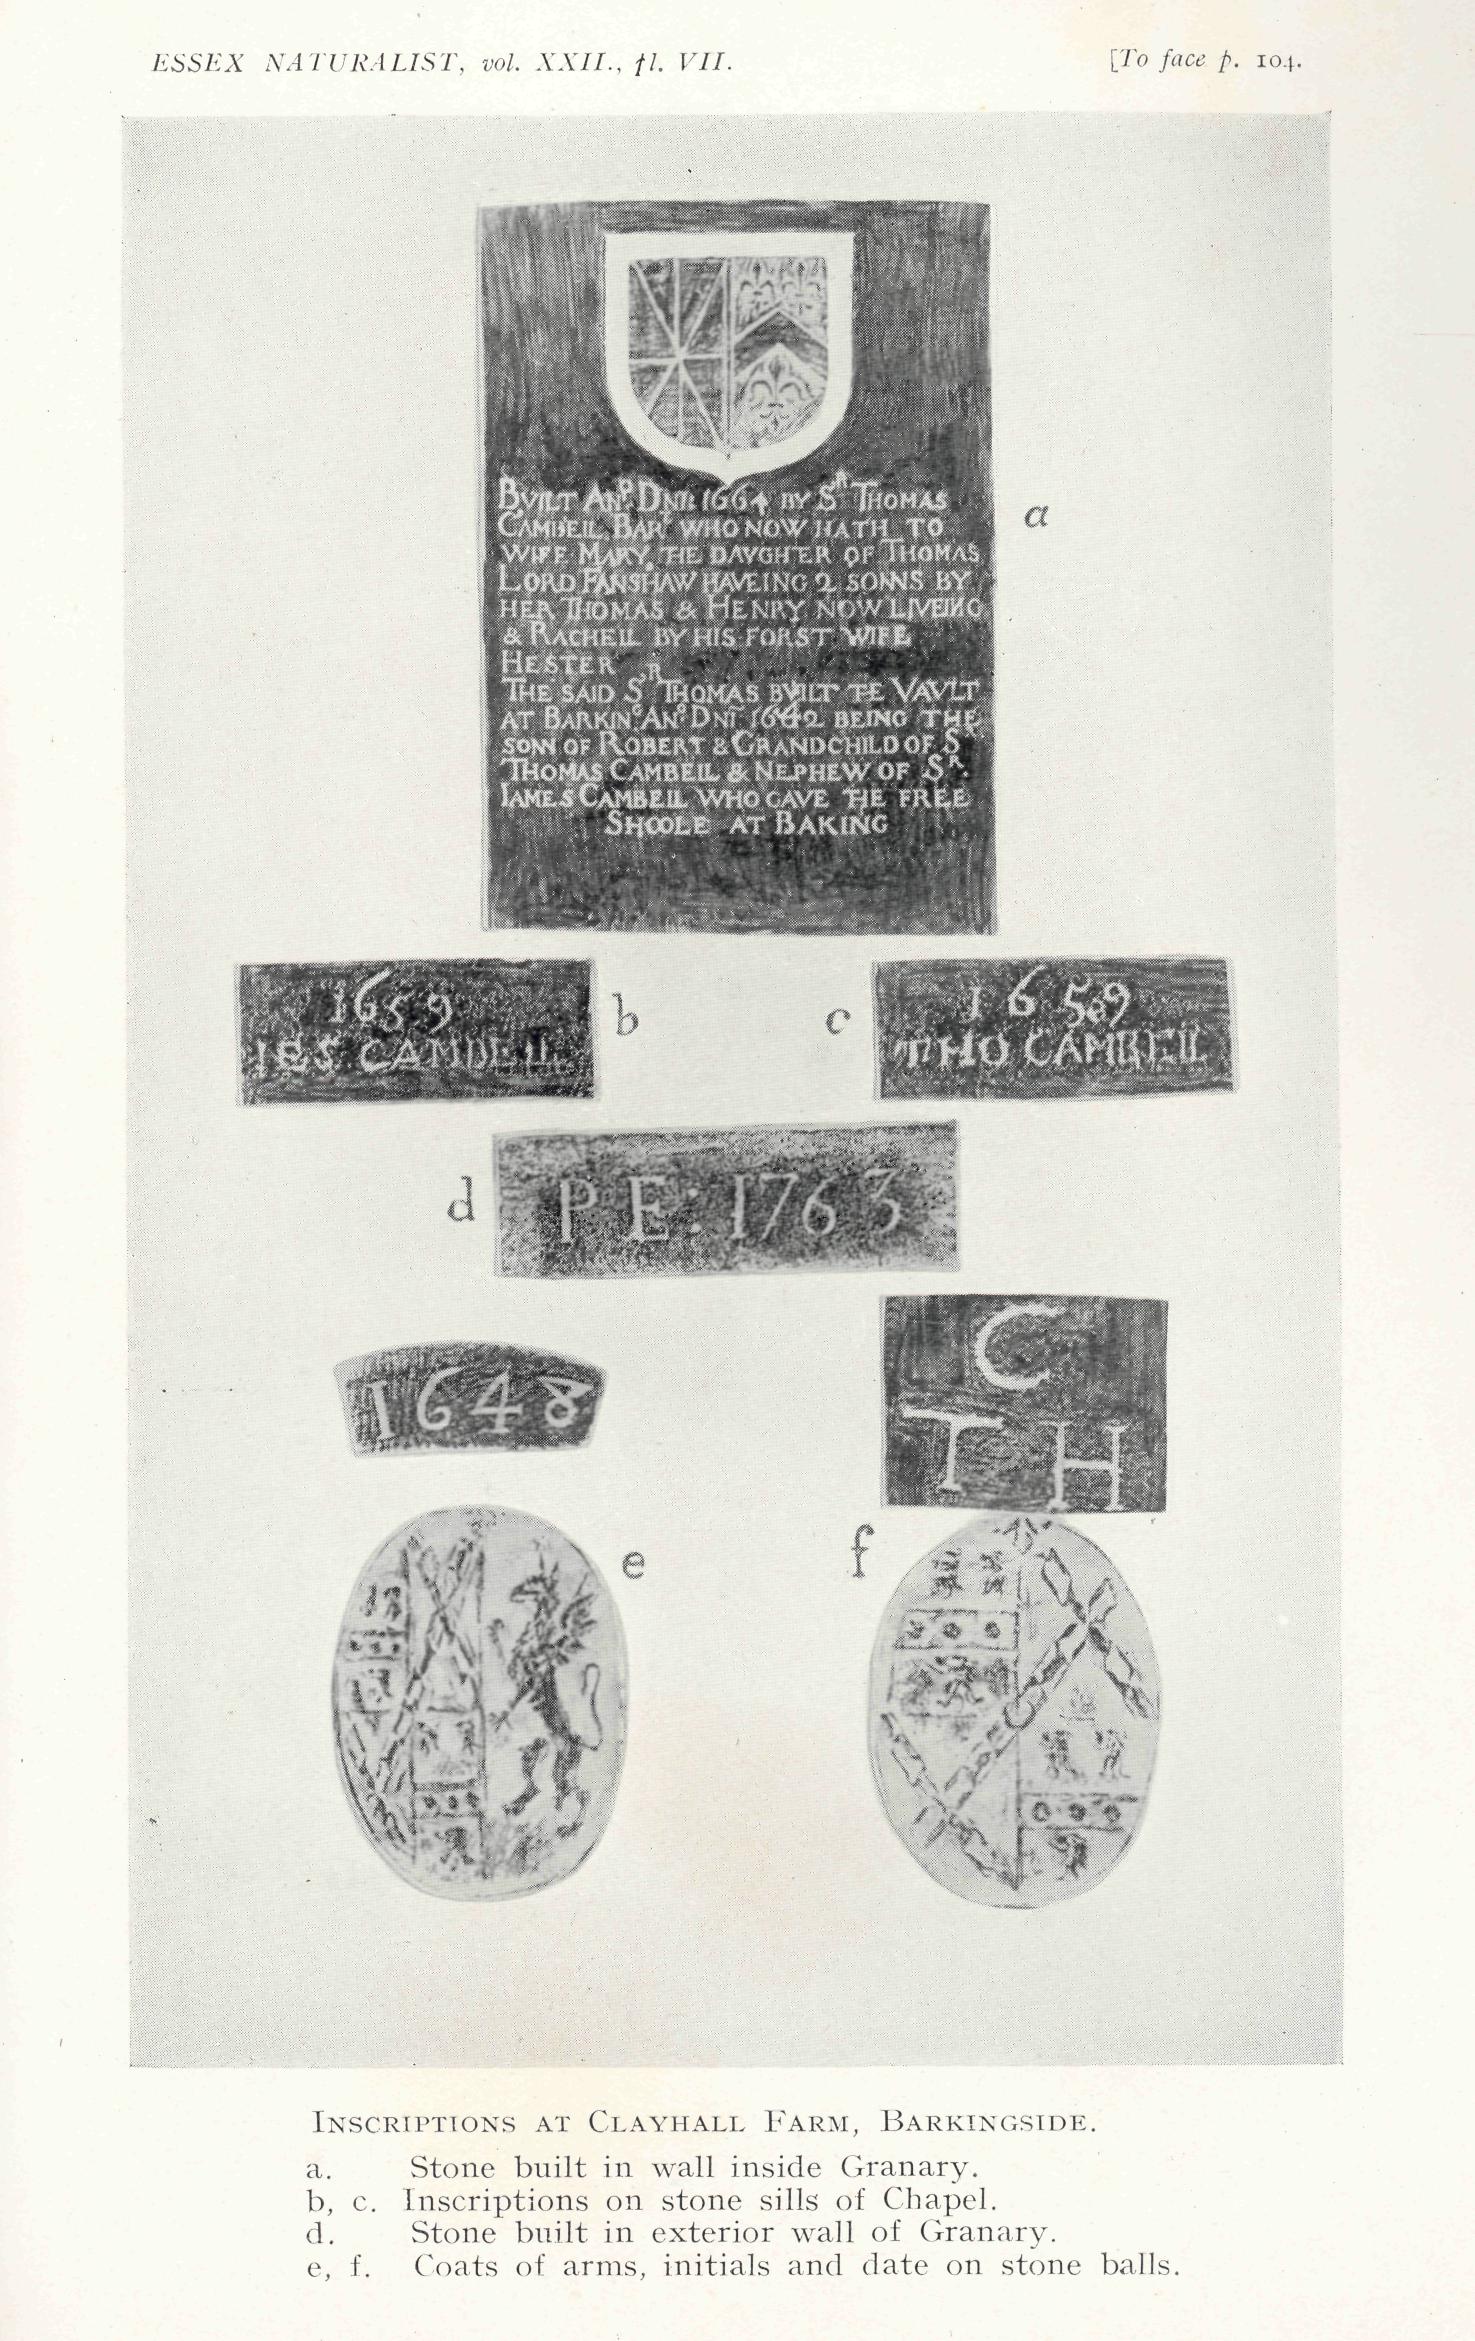 ESSEX NATURALIST, vol. XXII., pl. VII.
[To face p. 104.
BVILT ANº DNI: 1664 BY SR THOMAS
CAMBELL BART WHO NOW HATH TO
WIFE MARY THE DAVGHTER OF THOMAS
LORD FANSHAW HAVEING 2 SONNS BY
HER THOMAS & HENRY NOW LIVEING
& RACHELL BY HIS FORST WIFE
HESTER
THE SAID SR THOMAS BVILT TE VAVLT
AT BARKINº ANº DNI 1642 BEING THE
SONN OF ROBERT & GRANDCHILD OF SR
THOMAS CAMBELL & NEPHEW OF SR.
IAMES CAMBELL WHO GAVE THE FREE
SHOOLE AT BAKING
a
1659
IES CAMBELL
b
c
1659
THO CAMBELL
d
PE: 1763
1648
C
T H
e
f
INSCRIPTIONS AT CLAYHALL FARM, BARKINGSIDE.
a. Stone built in wall inside Granary.
b, c. Inscriptions on stone sills of Chapel.
d. Stone built in exterior wall of Granary.
e, f. Coats of arms, initials and date on stone balls.